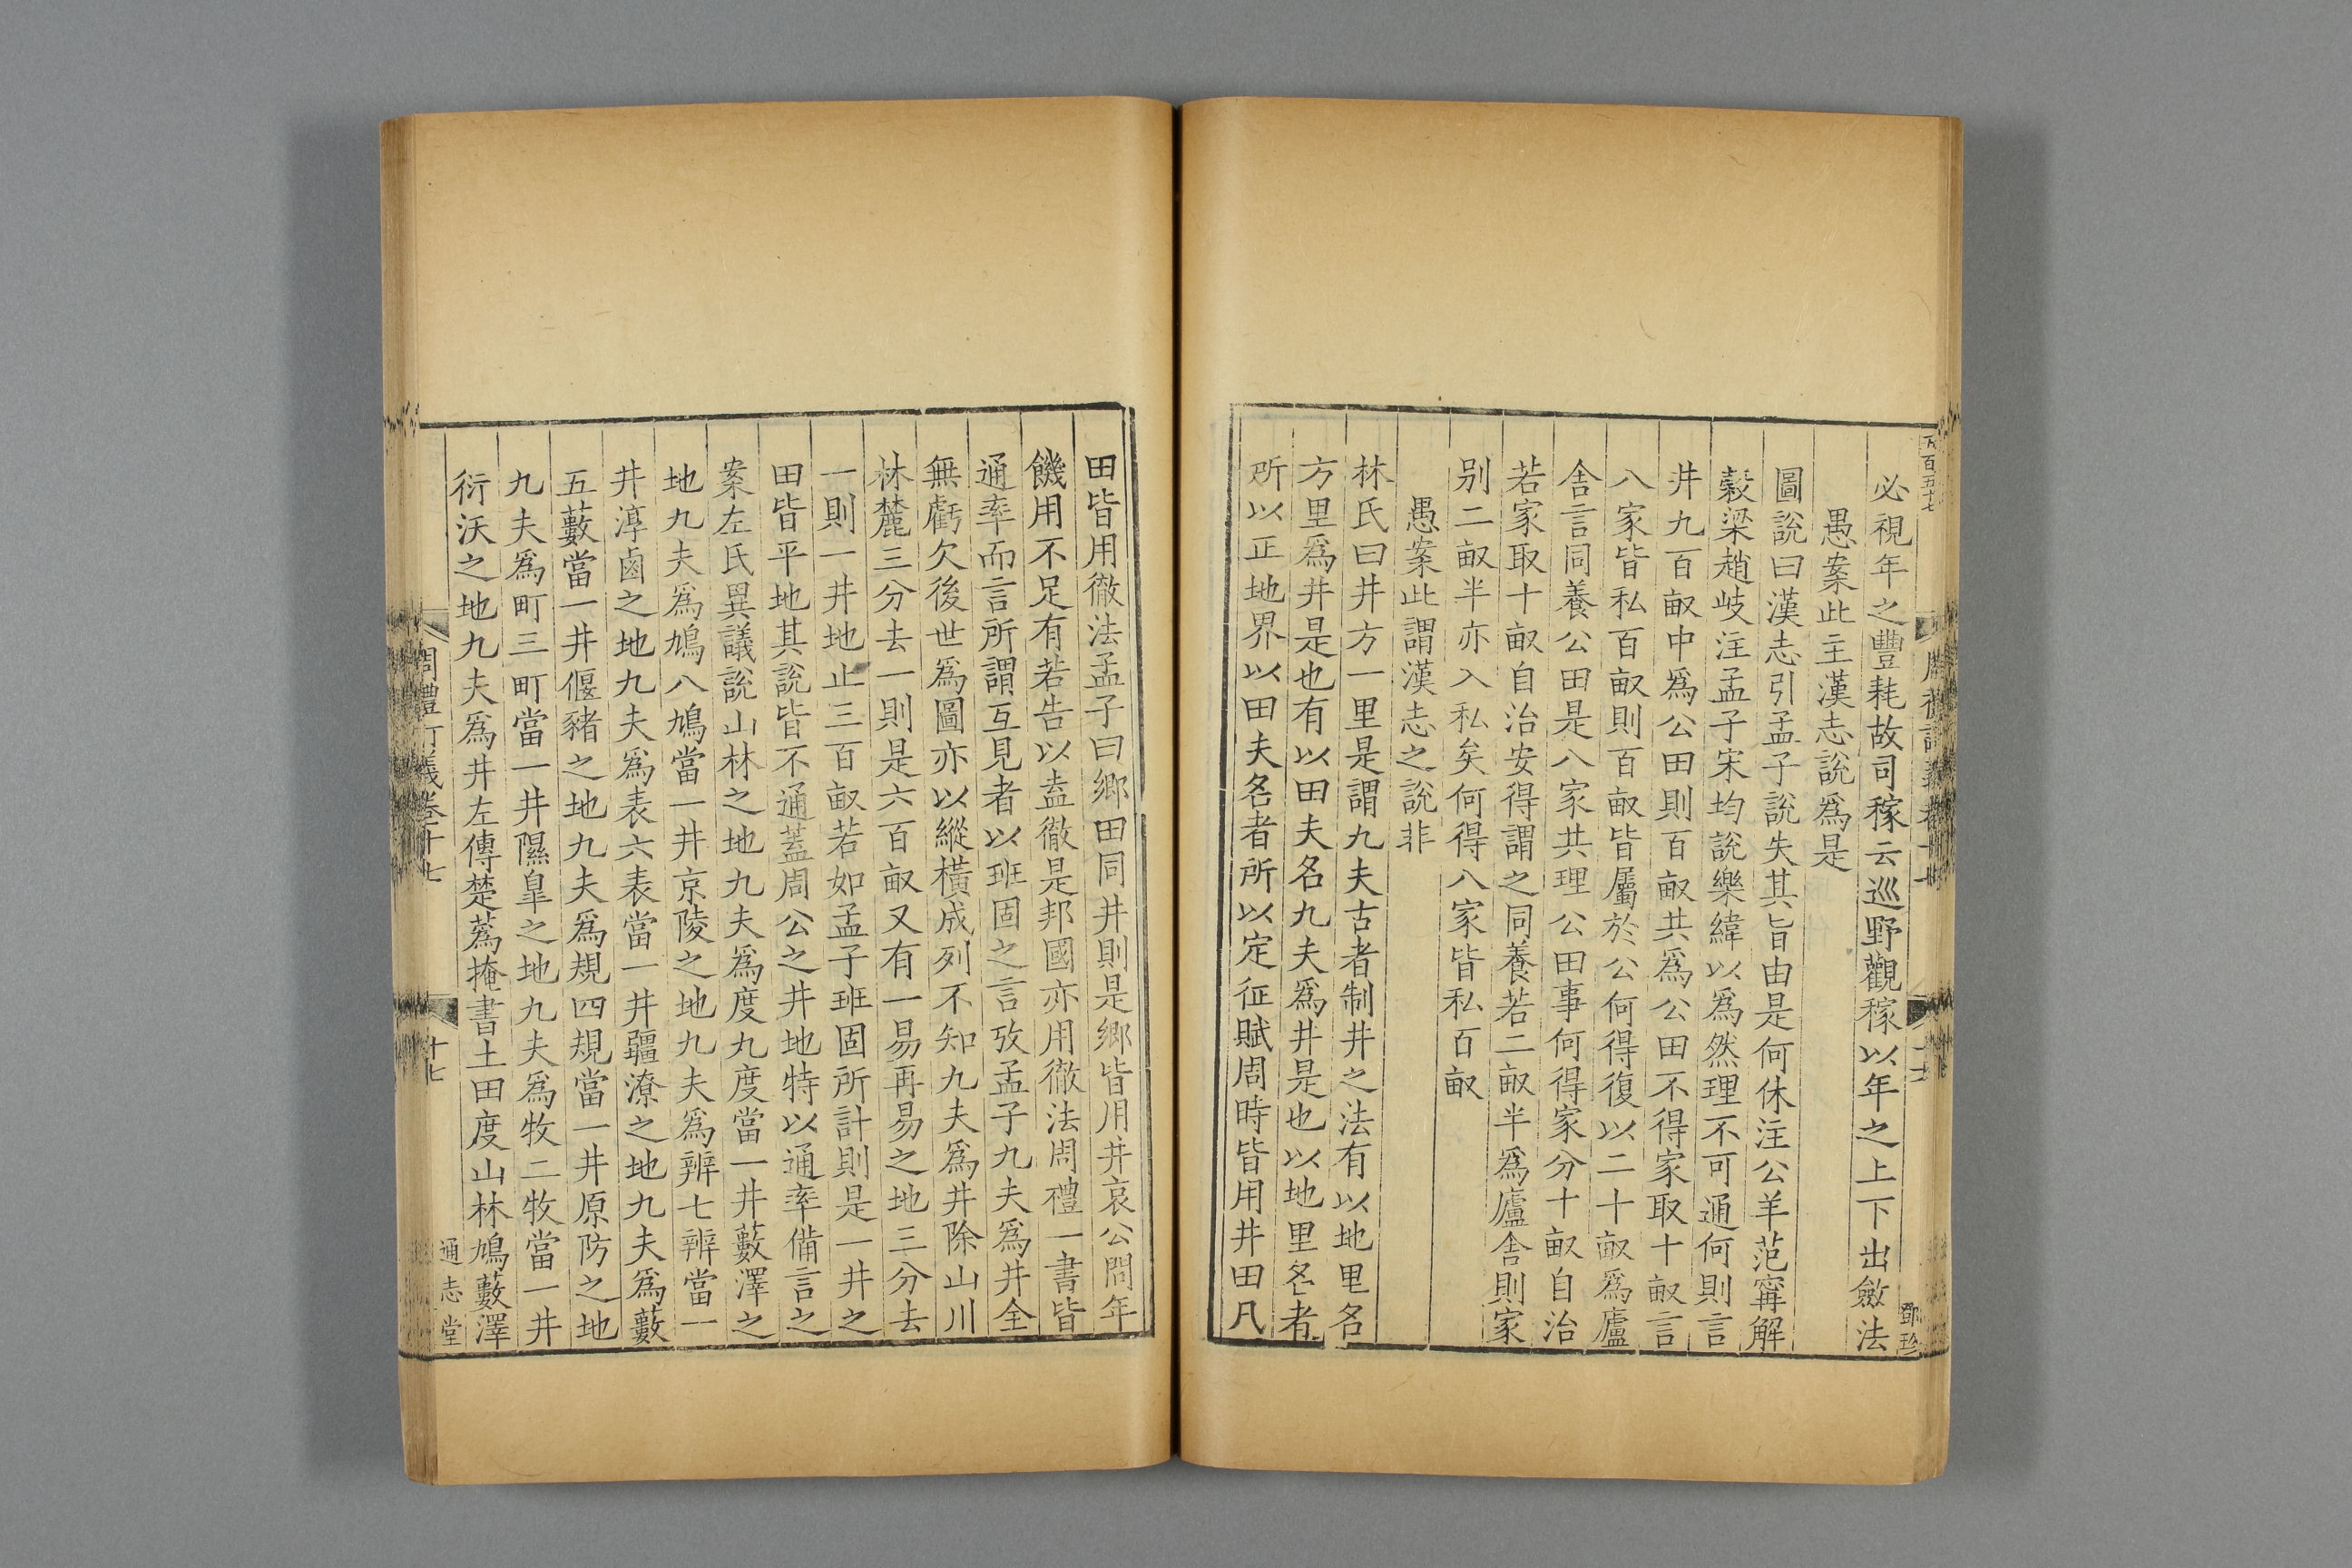 必視年之豐耗故司稼云巡野觀稼以年之上下出斂法
愚案此主漢志說爲是
圖說曰漢志引孟子說失其旨由是何休注公羊范甯解
穀梁趙岐注孟子宋均說樂緯以爲然理不可通何則言
井九百畝中爲公田則百畝共爲公田不得家取十畝言
八家皆私百畝則百畝皆屬於公何得復以二十畝爲廬
舍言同養公田是八家共理公田事何得家分十畝自治
若家取十畝自治安得謂之同養若二畝半爲廬舍則家
别二畝半亦入私矣何得八家皆私百畝
愚案此謂漢志之說非
林氏曰井方一里是謂九夫古者制井之法有以地里名
方里爲井是也有以田夫名九夫爲井是也以地里名者
所以正地界以田夫名者所以定征賦周時皆用井田凡
鄧珍
田皆用徹法孟子曰鄉田同井則是鄉皆用井哀公問年
饑用不足有若告以盍徹是邦國亦用徹法周禮一書皆
通率而言所謂互見者以班固之言攷孟子九夫爲井全
無虧欠後世爲圖亦以縱橫成列不知九夫爲井除山川
林麓三分去一則是六百畝又有一易再易之地三分去
一則一井地止三百畝若如孟子班固所計則是一井之
田皆平地其說皆不通蓋周公之井地特以通率備言之
案左氏異議說山林之地九夫爲度九度當一井藪澤之
地九夫爲鳩八鳩當一井京陵之地九夫爲辨七辨當一
井淳鹵之地九夫爲表六表當一井疆潦之地九夫爲藪
五藪當一井偃豬之地九夫爲規四規當一井原防之地
九夫爲町三町當一井隰皐之地九夫爲牧二牧當一井
衍沃之地九夫爲井左傳楚蒍掩書土田度山林鳩藪澤
周禮訂義卷十七 十七 通志堂